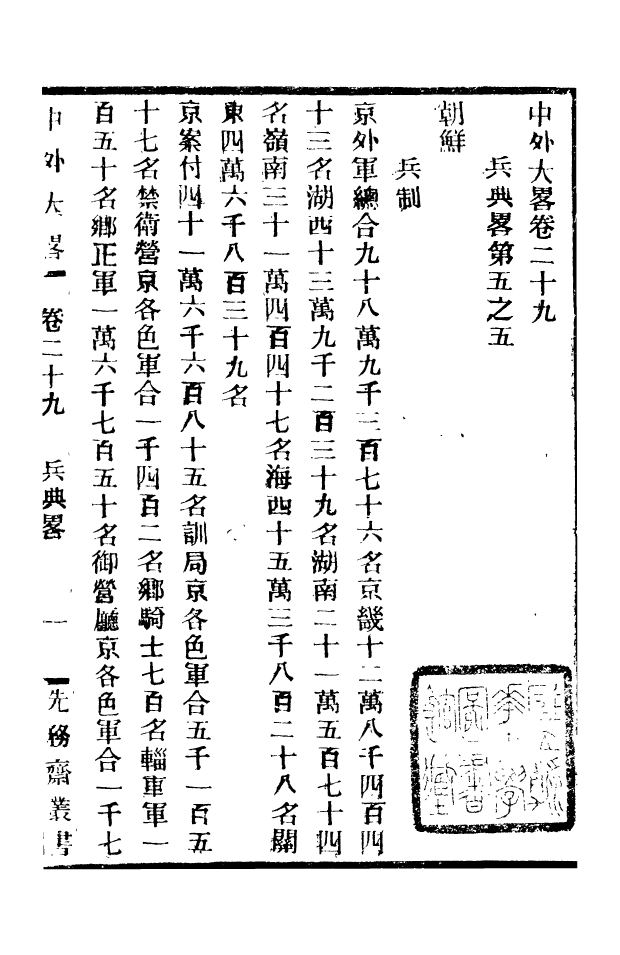 中外大畧卷二十九
兵典畧第五之五
朝鮮
兵制
京外軍總合九十八萬九千三百七十六名京畿十二萬八千四百四
十三名湖西十三萬九千二百三十九名湖南二十一萬五百七十四
名嶺南三十一萬四百四十七名海西十五萬三千八百二十八名關
東四萬六千八百三十九名
京案付四十一萬六千六百八十五名訓局京各色軍合五千一百五
十七名禁衛營京各色軍合一千四百二名鄉騎士七百名輜車軍一
百五十名鄉正軍一萬六千七百五十名御營廳京各色軍合一千七
中外大畧 卷二十九 兵典畧 一 先務齋叢書